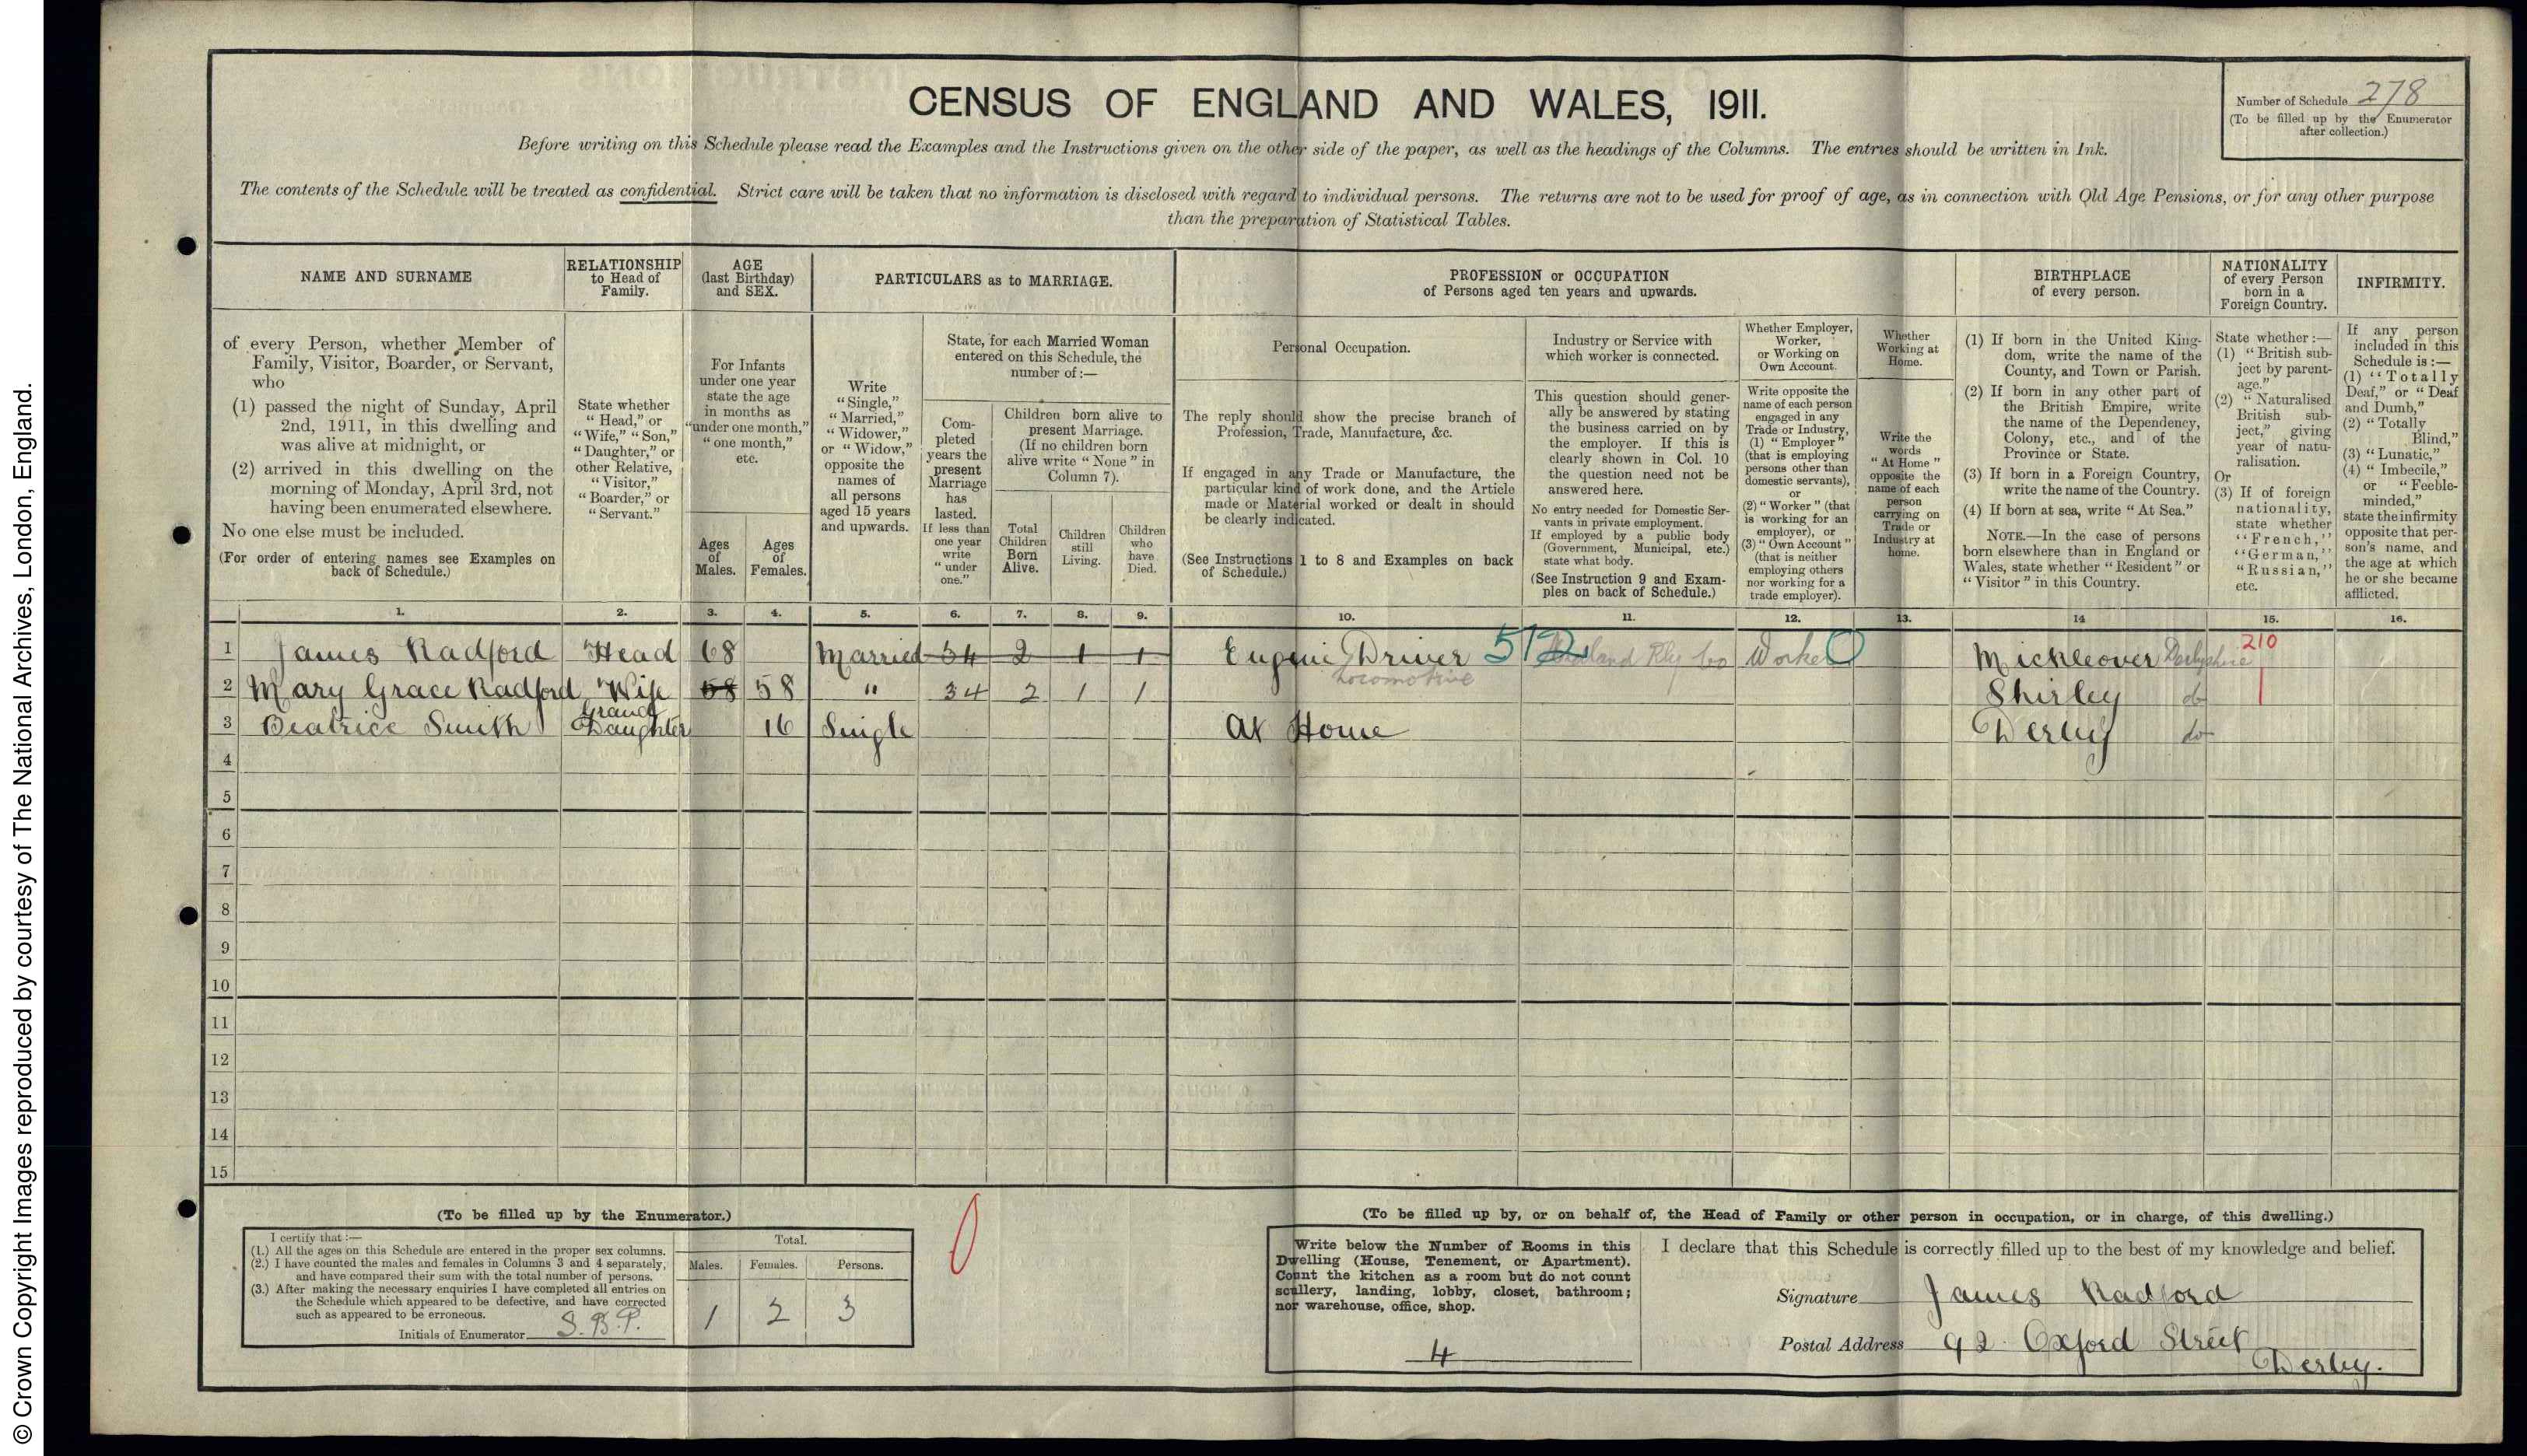 © Crown Copyright Images reproduced by courtesy of The National Archives, London, England.
CENSUS OF ENGLAND AND WALES, 1911.
Number of Schedule 278
(To be filled up by the Enumerator
after collection.)
Before writing on this Schedule please read the Examples and the Instructions given on the other side of the paper, as well as the headings of the Columns. The entries should be written in Ink.
The contents of the Schedule will be treated as confidential. Strict care will be taken that no information is disclosed with regard to individual persons. The returns are not to be used for proof of age, as in connection with Old Age Pensions, or for any other purpose
than the preparation of Statistical Tables.
NAME AND SURNAME
of every Person, whether Member of
Family, Visitor, Boarder, or Servant,
who
(1) passed the night of Sunday, April
2nd, 1911, in this dwelling and
was alive at midnight, or
(2) arrived in this dwelling on the
morning of Monday, April 3rd, not
having been enumerated elsewhere.
No one else must be included.
(For order of entering names see Examples on
back of Schedule.)
RELATIONSHIP
to Head of
Family.
State whether
"Head," or
"Wife," "Son,"
"Daughter," or
other Relative,
"Visitor,"
"Boarder," or
"Servant."
AGE
(last Birthday)
and SEX.
For Infants
under one year
state the age
in months as
"under one month,"
"one month,"
etc.
Ages
of
Males.
Ages
of
Females.
PARTICULARS as to MARRIAGE.
Write
"Single,"
"Married,"
"Widower,"
or "Widow,"
opposite the
names of
all persons
aged 15 years
and upwards.
State, for each Married Woman
entered on this Schedule, the
number of :—
Com-
pleted
years the
present
Marriage
has
lasted.
If less than
one year
write
"under
one."
Children born alive to
present Marriage.
(If no children born
alive write "None" in
Column 7).
Total
Children
Born
Alive.
Children
still
Living.
Children
who
have
Died.
PROFESSION or OCCUPATION
of Persons aged ten years and upwards.
Personal Occupation.
The reply should show the precise branch of
Profession, Trade, Manufacture, &c.
If engaged in any Trade or Manufacture, the
particular kind of work done, and the Article
made or Material worked or dealt in should
be clearly indicated.
(See Instructions 1 to 8 and Examples on back
of Schedule.)
Industry or Service with
which worker is connected.
This question should gener-
ally be answered by stating
the business carried on by
the employer. If this is
clearly shown in Col. 10
the question need not be
answered here.
No entry needed for Domestic Ser-
vants in private employment.
If employed by a public body
(Government, Municipal, etc.)
state what body.
(See Instruction 9 and Exam-
ples on back of Schedule.)
Whether Employer,
Worker,
or Working on
Own Account.
Write opposite the
name of each person
engaged in any
Trade or Industry,
(1) "Employer"
(that is employing
persons other than
domestic servants),
or
(2) "Worker" (that
is working for an
employer), or
(3) "Own Account"
(that is neither
employing others
nor working for a
trade employer).
Whether
Working at
Home.
Write the
words
"At Home"
opposite the
name of each
person
carrying on
Trade or
Industry at
home.
BIRTHPLACE
of every person.
(1) If born in the United King-
dom, write the name of the
County, and Town or Parish.
(2) If born in any other part of
the British Empire, write
the name of the Dependency,
Colony, etc., and of the
Province or State.
(3) If born in a Foreign Country,
write the name of the Country.
(4) If born at sea, write "At Sea."
NOTE.—In the case of persons
born elsewhere than in England or
Wales, state whether "Resident" or
"Visitor" in this Country.
NATIONALITY
of every Person
born in a
Foreign Country.
State whether :—
(1) "British sub-
ject by parent-
age."
(2) "Naturalised
British sub-
ject," giving
year of natu-
ralisation.
Or
(3) If of foreign
nationality,
state whether
"French,"
"German,"
"Russian,"
etc.
INFIRMITY.
If any person
included in this
Schedule is :—
(1) "Totally
Deaf," or "Deaf
and Dumb,"
(2) "Totally
Blind,"
(3) "Lunatic,"
(4) "Imbecile,"
or "Feeble-
minded,"
state the infirmity
opposite that per-
son's name, and
the age at which
he or she became
afflicted.
1. 2. 3. 4. 5. 6. 7. 8. 9. 10. 11. 12. 13. 14 15. 16.
1 James Radford Head 68 Married 34 2 1 1 Engine Driver 512 Midland Rly Co Worker Mickleover Derbyshire 210
Locomotive
2 Mary Grace Radford Wife 58 58 " 34 2 1 1 Shirley do
3 Beatrice Smith Grand Daughter 16 Single At Home Derby do
4
5
6
7
8
9
10
11
12
13
14
15
(To be filled up by the Enumerator.)
I certify that :—
(1.) All the ages on this Schedule are entered in the proper sex columns.
(2.) I have counted the males and females in Columns 3 and 4 separately,
and have compared their sum with the total number of persons.
(3.) After making the necessary enquiries I have completed all entries on
the Schedule which appeared to be defective, and have corrected
such as appeared to be erroneous.
Initials of Enumerator S.B.P.
Total.
Males. Females. Persons.
1 2 3
(To be filled up by, or on behalf of, the Head of Family or other person in occupation, or in charge, of this dwelling.)
Write below the Number of Rooms in this
Dwelling (House, Tenement, or Apartment).
Count the kitchen as a room but do not count
scullery, landing, lobby, closet, bathroom;
nor warehouse, office, shop.
4
I declare that this Schedule is correctly filled up to the best of my knowledge and belief.
Signature James Radford
Postal Address 92 Oxford Street
Derby.